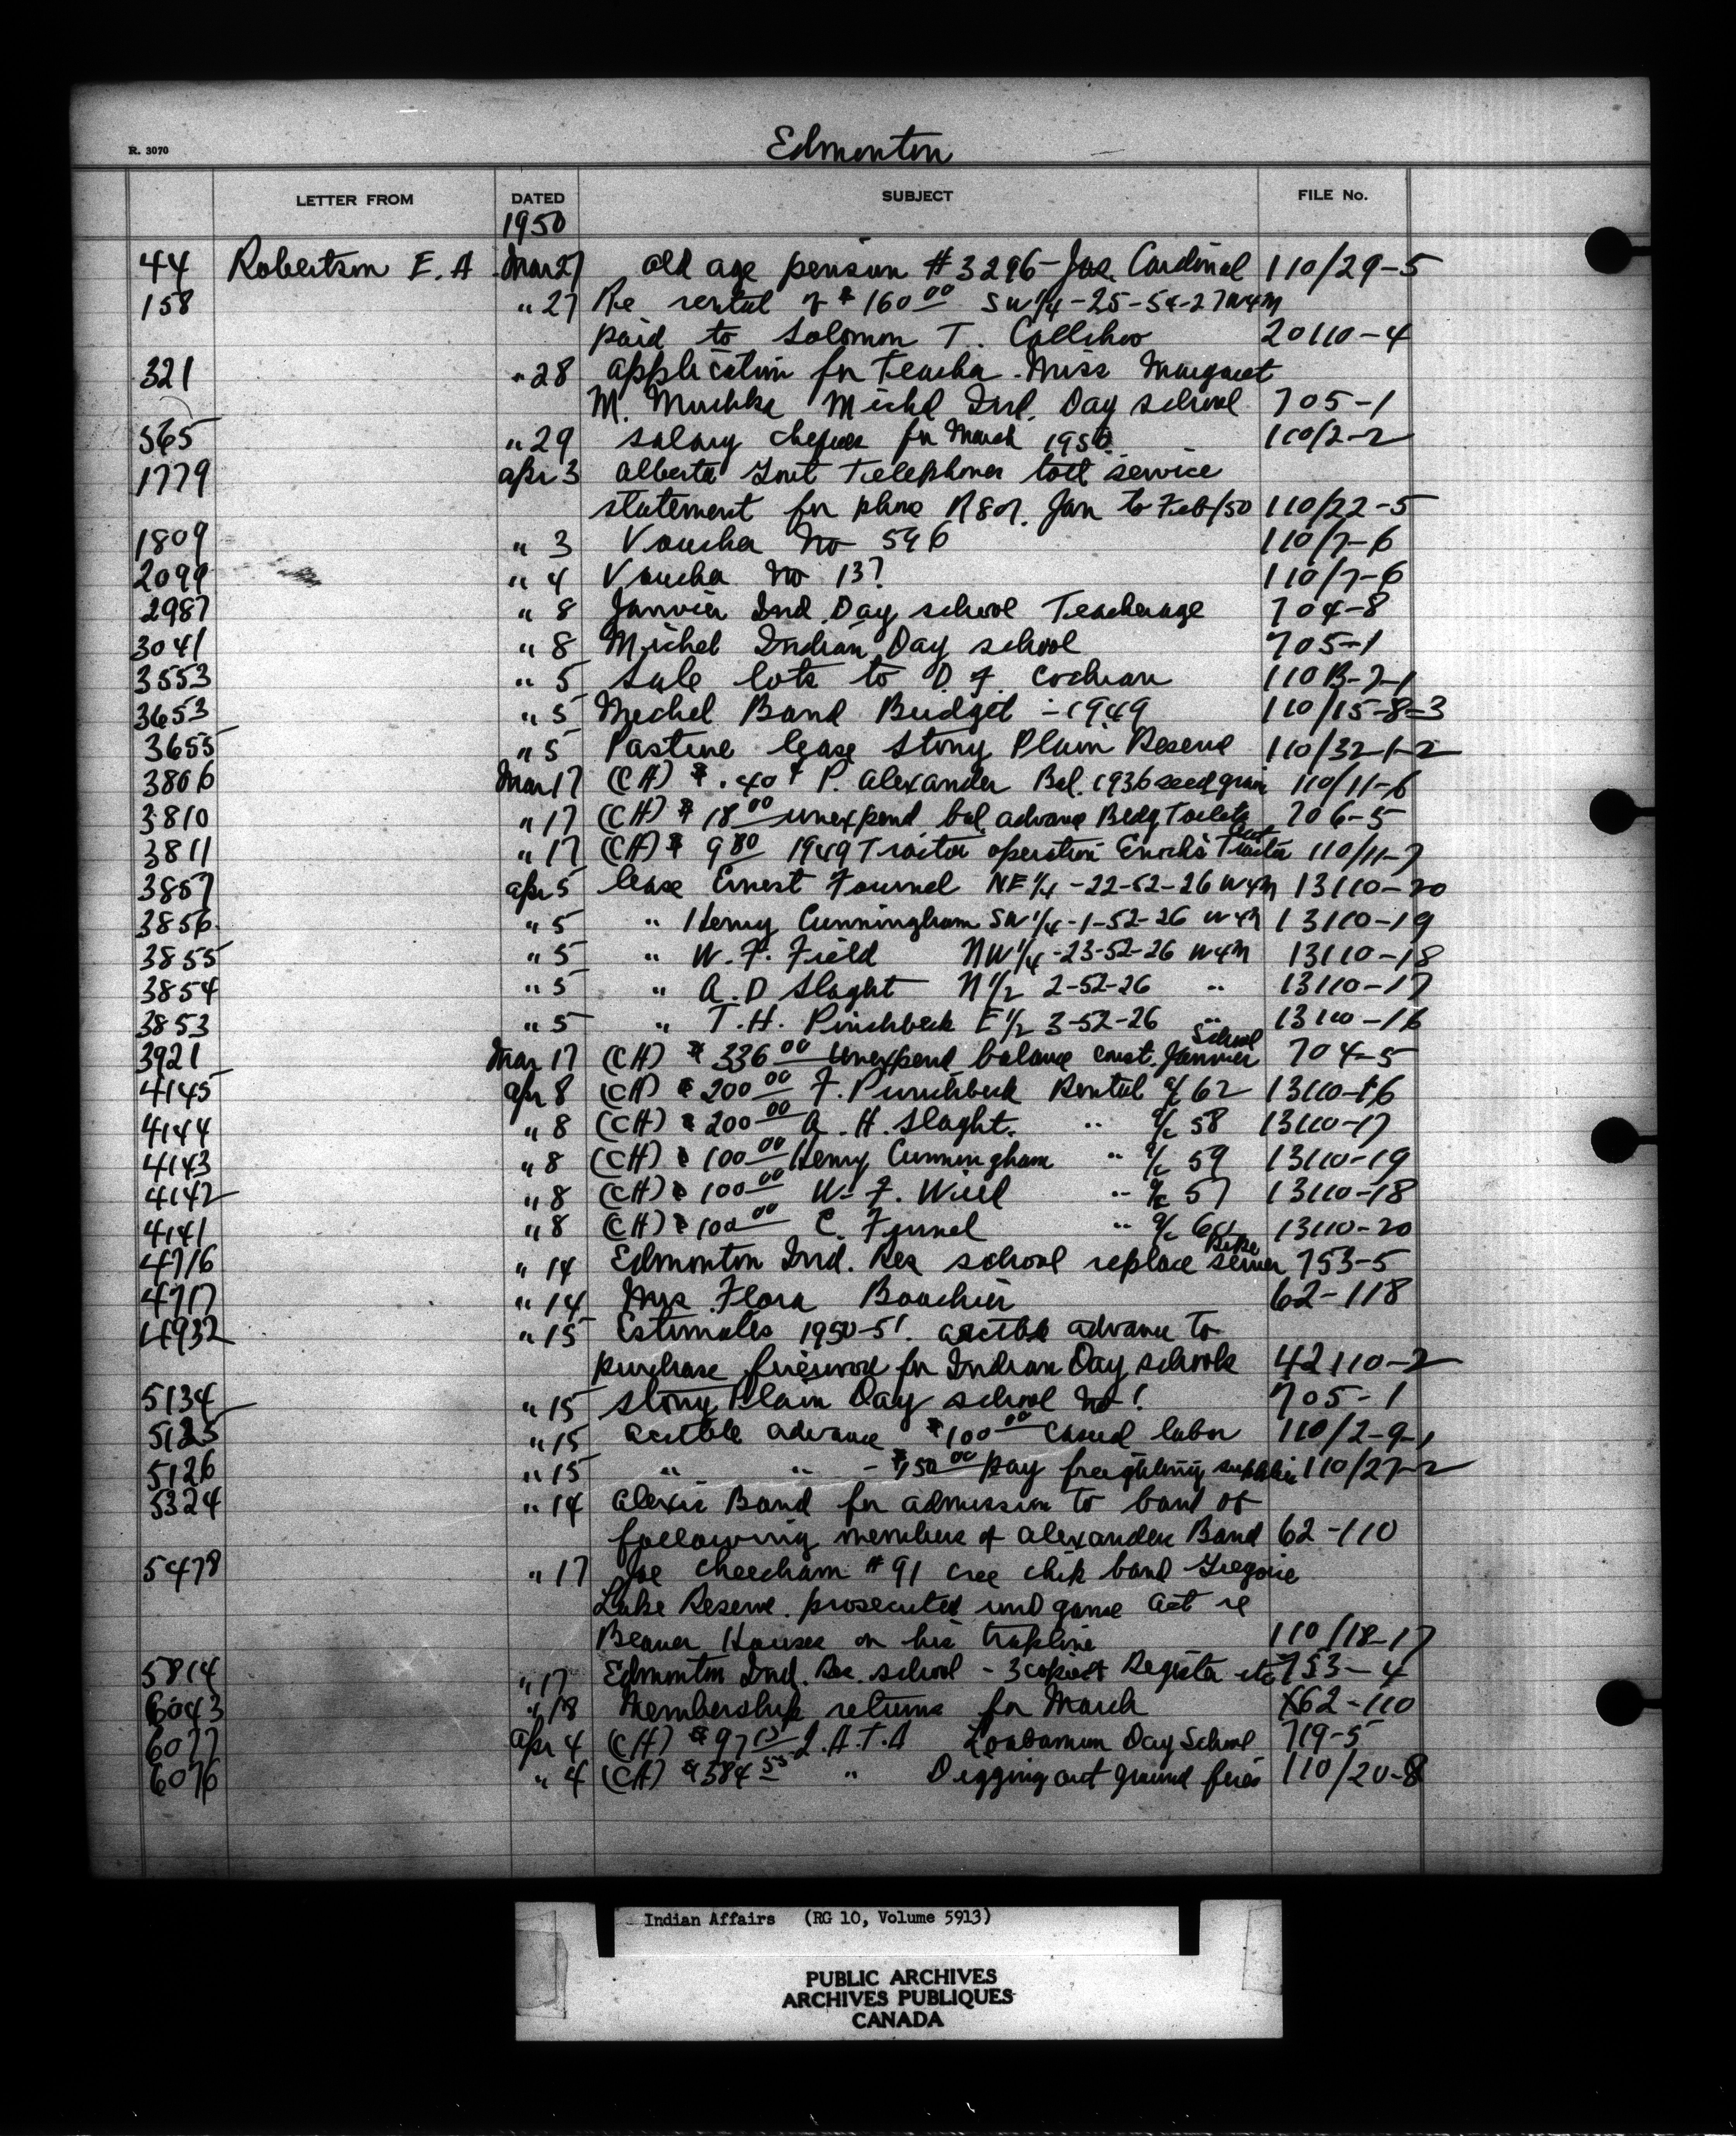 Edmonton
R. 3070
LETTER FROM DATED SUBJECT FILE No.
1950
44 Robertson E. A Mar 27 Old age pension # 3296 - Joe Cardinal 110/29-5
158 " 27 Re rental of $ 160 00 SW 1/4 - 25-54-27 W4M
paid to Solomon T. Callihoo 20110-4
321 " 28 application for Teacher. Miss Margaret
M. Michel Ind. Day school 705-1
565 " 29 salary cheques for March 1950 110/2-2
1779 apr 3 Alberta Govt Telephones toll service
statement for phone Jan to Feb/50 110/22-5
1809 " 3 Voucher No 596 110/7-6
2099 " 4 Voucher No 137 110/7-6
2987 " 8 Janvier Ind. Day school Teacherage 704-8
3041 " 8 Michel Indian Day school 705-1
3553 " 5 Sale lots to D. F. Cochran 110B-7-1
3653 " 5 Michel Band Budget - 1949 110/15-8-3
3655 " 5 Pasture lease Stony Plain Reserve 110/32-1-2
3806 Mar 17 (CH) $ .40 ¢ P. Alexander Bal. 1936 seed grain 110/11-6
3810 " 17 (CH) $ 18 00 unexpend bal. advance Bldg Toilets 706-5
3811 " 17 (CH) $ 9 80 1949 Tractor operation Enochs Tractor 110/11-7
3857 apr 5 lease Ernest Fournel NE 1/4 - 22-52-26 W4M 13110-20
3856 " 5 " Henry Cunningham SW 1/4 - 1-52-26 W4M 13110-19
3855 " 5 " W. F. Field NW 1/4 - 23-52-26 W4M 13110-18
3854 " 5 " A. D Slaght N 1/2 2-52-26 " 13110-17
3853 " 5 " T. H. Pinchbeck E 1/2 3-52-26 " 13110-16
School
3921 Mar 17 (CH) $ 336 00 unexpend balance const. Janvier 704-5
4145 apr 8 (CH) $ 200 00 F. Punchbeck Rental a/c 62 13110-16
4144 " 8 (CH) $ 200 00 A. H. Slaght. " a/c 58 13110-17
4143 " 8 (CH) $ 100 00 Henry Cunningham " a/c 59 13110-19
4142 " 8 (CH) $ 100 00 W. F. " a/c 57 13110-18
4141 " 8 (CH) $ 100 00 " a/c 13110-20
4716 " 14 Edmonton Ind. Res school replace sewer 753-5
4717 " 14 Mrs. Flora Bouchier 62-118
4932 " 15 Estimates 1950-51. acctble advance to
purchase firewood for Indian Day schools 42110-2
5134 " 15 Stony Plain Day school No 1 705-1
5125 " 15 acctble advance $ 100 00 casual labor 110/2-9-1
5126 " 15 " " - 00 pay freighting supplies 110/27-2
5324 " 14 Alexis Band for admission to band of
following members of Alexander Band 62-110
5478 " 17 Joe Cheecham # 91 Cree chip band Gregoire
Lake Reserve. prosecuted und game act re
Beaver Houses on his trapline 110/18-17
5814 " 17 Edmonton Ind. Res. school - 3 copies Register etc 753-4
6043 " 18 Membership returns for March X62-110
6077 apr 4 (CH) $ 97 I.A.T.A Day School 719-5
6076 " 4 (CH) $ 584 55 " Digging out ground fires 110/20-8
Indian Affairs (RG 10, Volume 5913)
PUBLIC ARCHIVES
ARCHIVES PUBLIQUES
CANADA